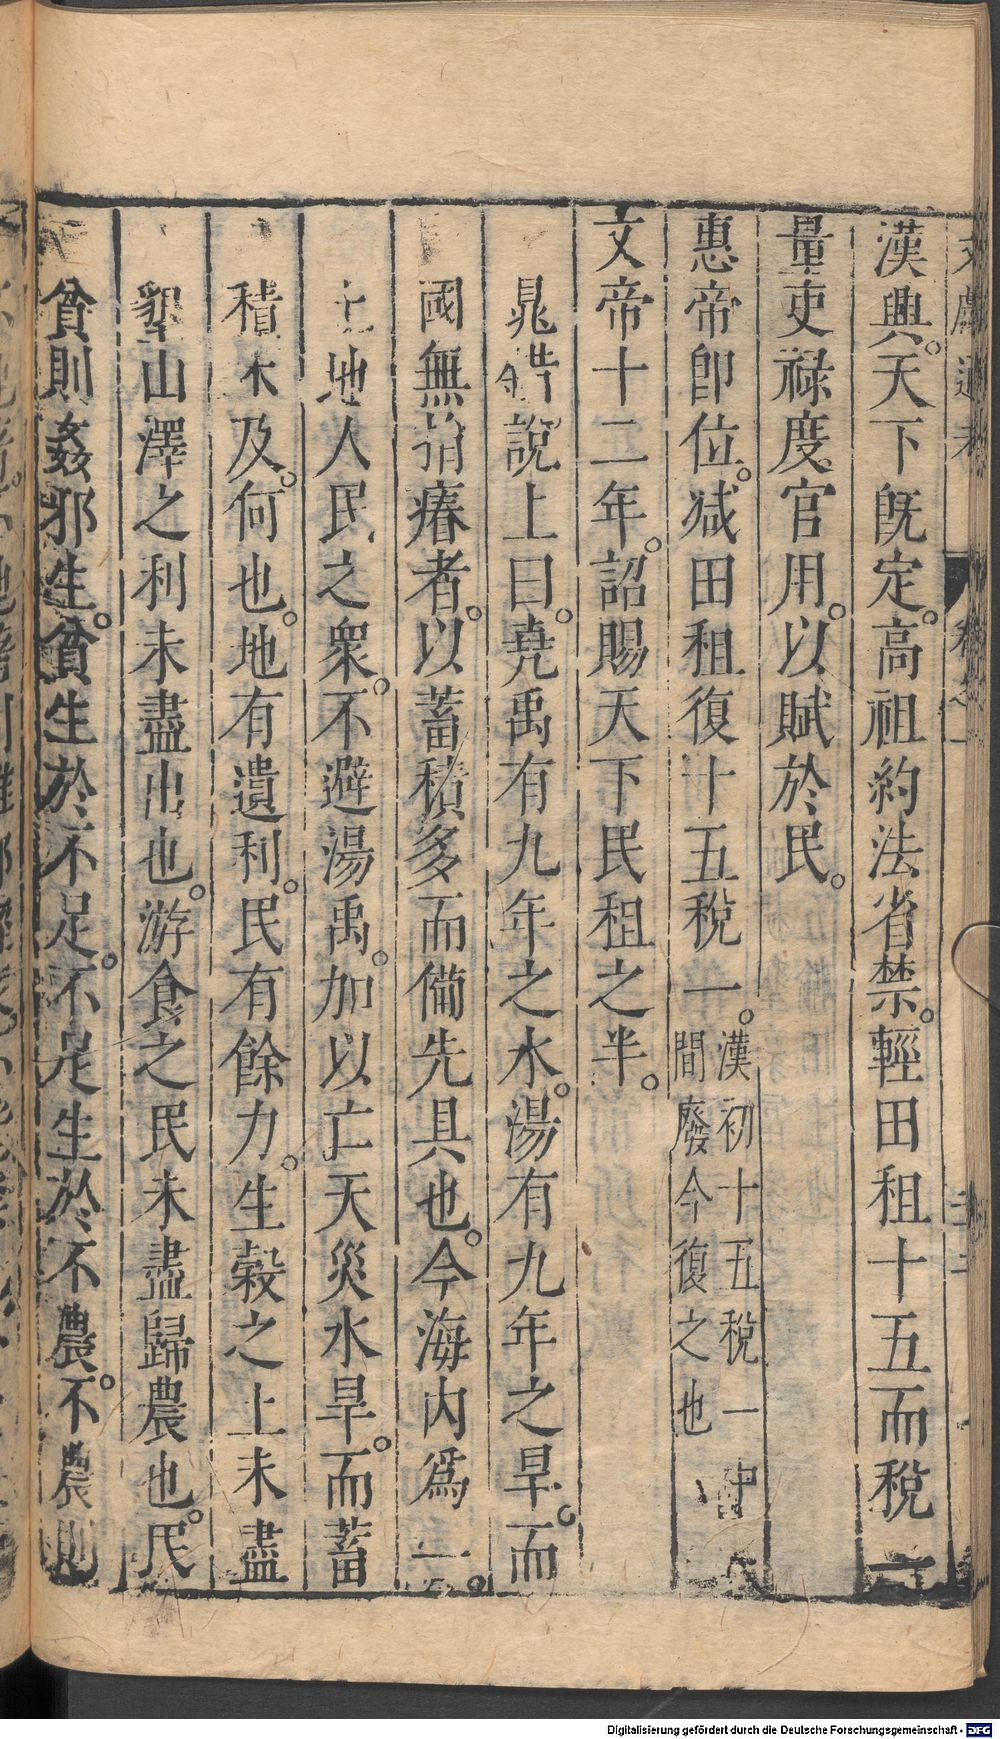 文獻通考 卷之一
漢興。天下既定。高祖約法省禁。輕田租十五而稅一
量吏祿度官用。以賦於民。
惠帝即位。减田租復十五稅一。漢初十五稅一中
間廢今復之也
文帝十二年。詔賜天下民租之半。
晁錯說上曰。堯禹有九年之水。湯有九年之旱。而
國無捐瘠者。以蓄積多而備先具也。今海内爲一。
土地人民之衆。不避湯禹。加以亡天災水旱。而蓄
積未及。何也。地有遺利。民有餘力。生穀之土未盡
墾山澤之利未盡出也。游食之民未盡歸農也。民
貧則姦邪生。貧生於不足。不足生於不農。不農則
Digitalisierung gefördert durch die Deutsche Forschungsgemeinschaft - DFG